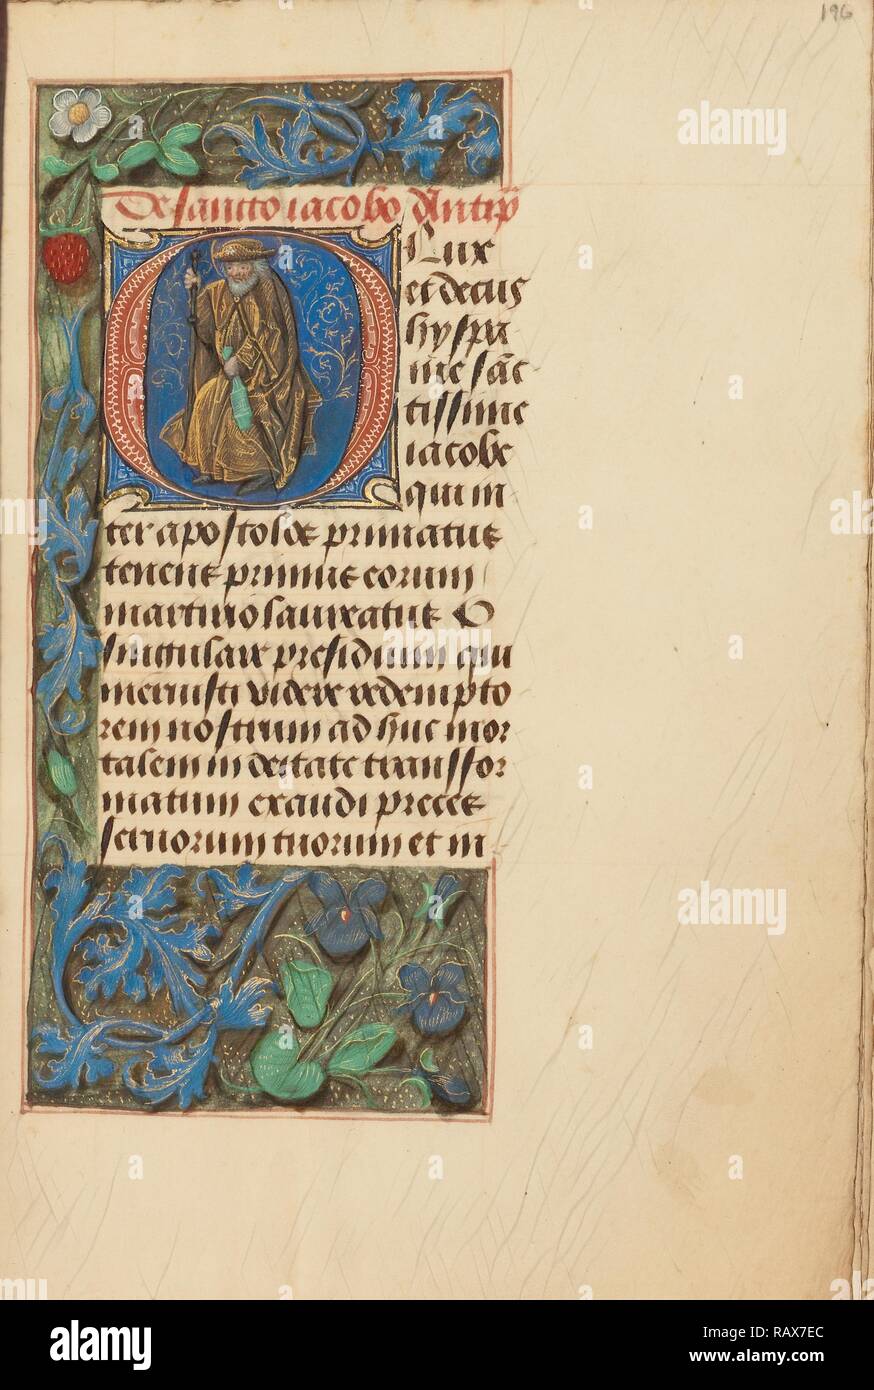 196
De sancto iacobo Antiph̄
O Lux
et decus
hyspa
nie sāc
tissime
iacobe
qui in
ter apostolos primatus
tenens primus eorum
martirio laureatus O
singulare presidium qui
meruisti videre redempto
rem nostrum ad huc mor
talem in deitate transfor
matum exaudi preces
seruorum tuorum et in
alamy
alamy
alamy
Image ID: RAX7EC
www.alamy.com